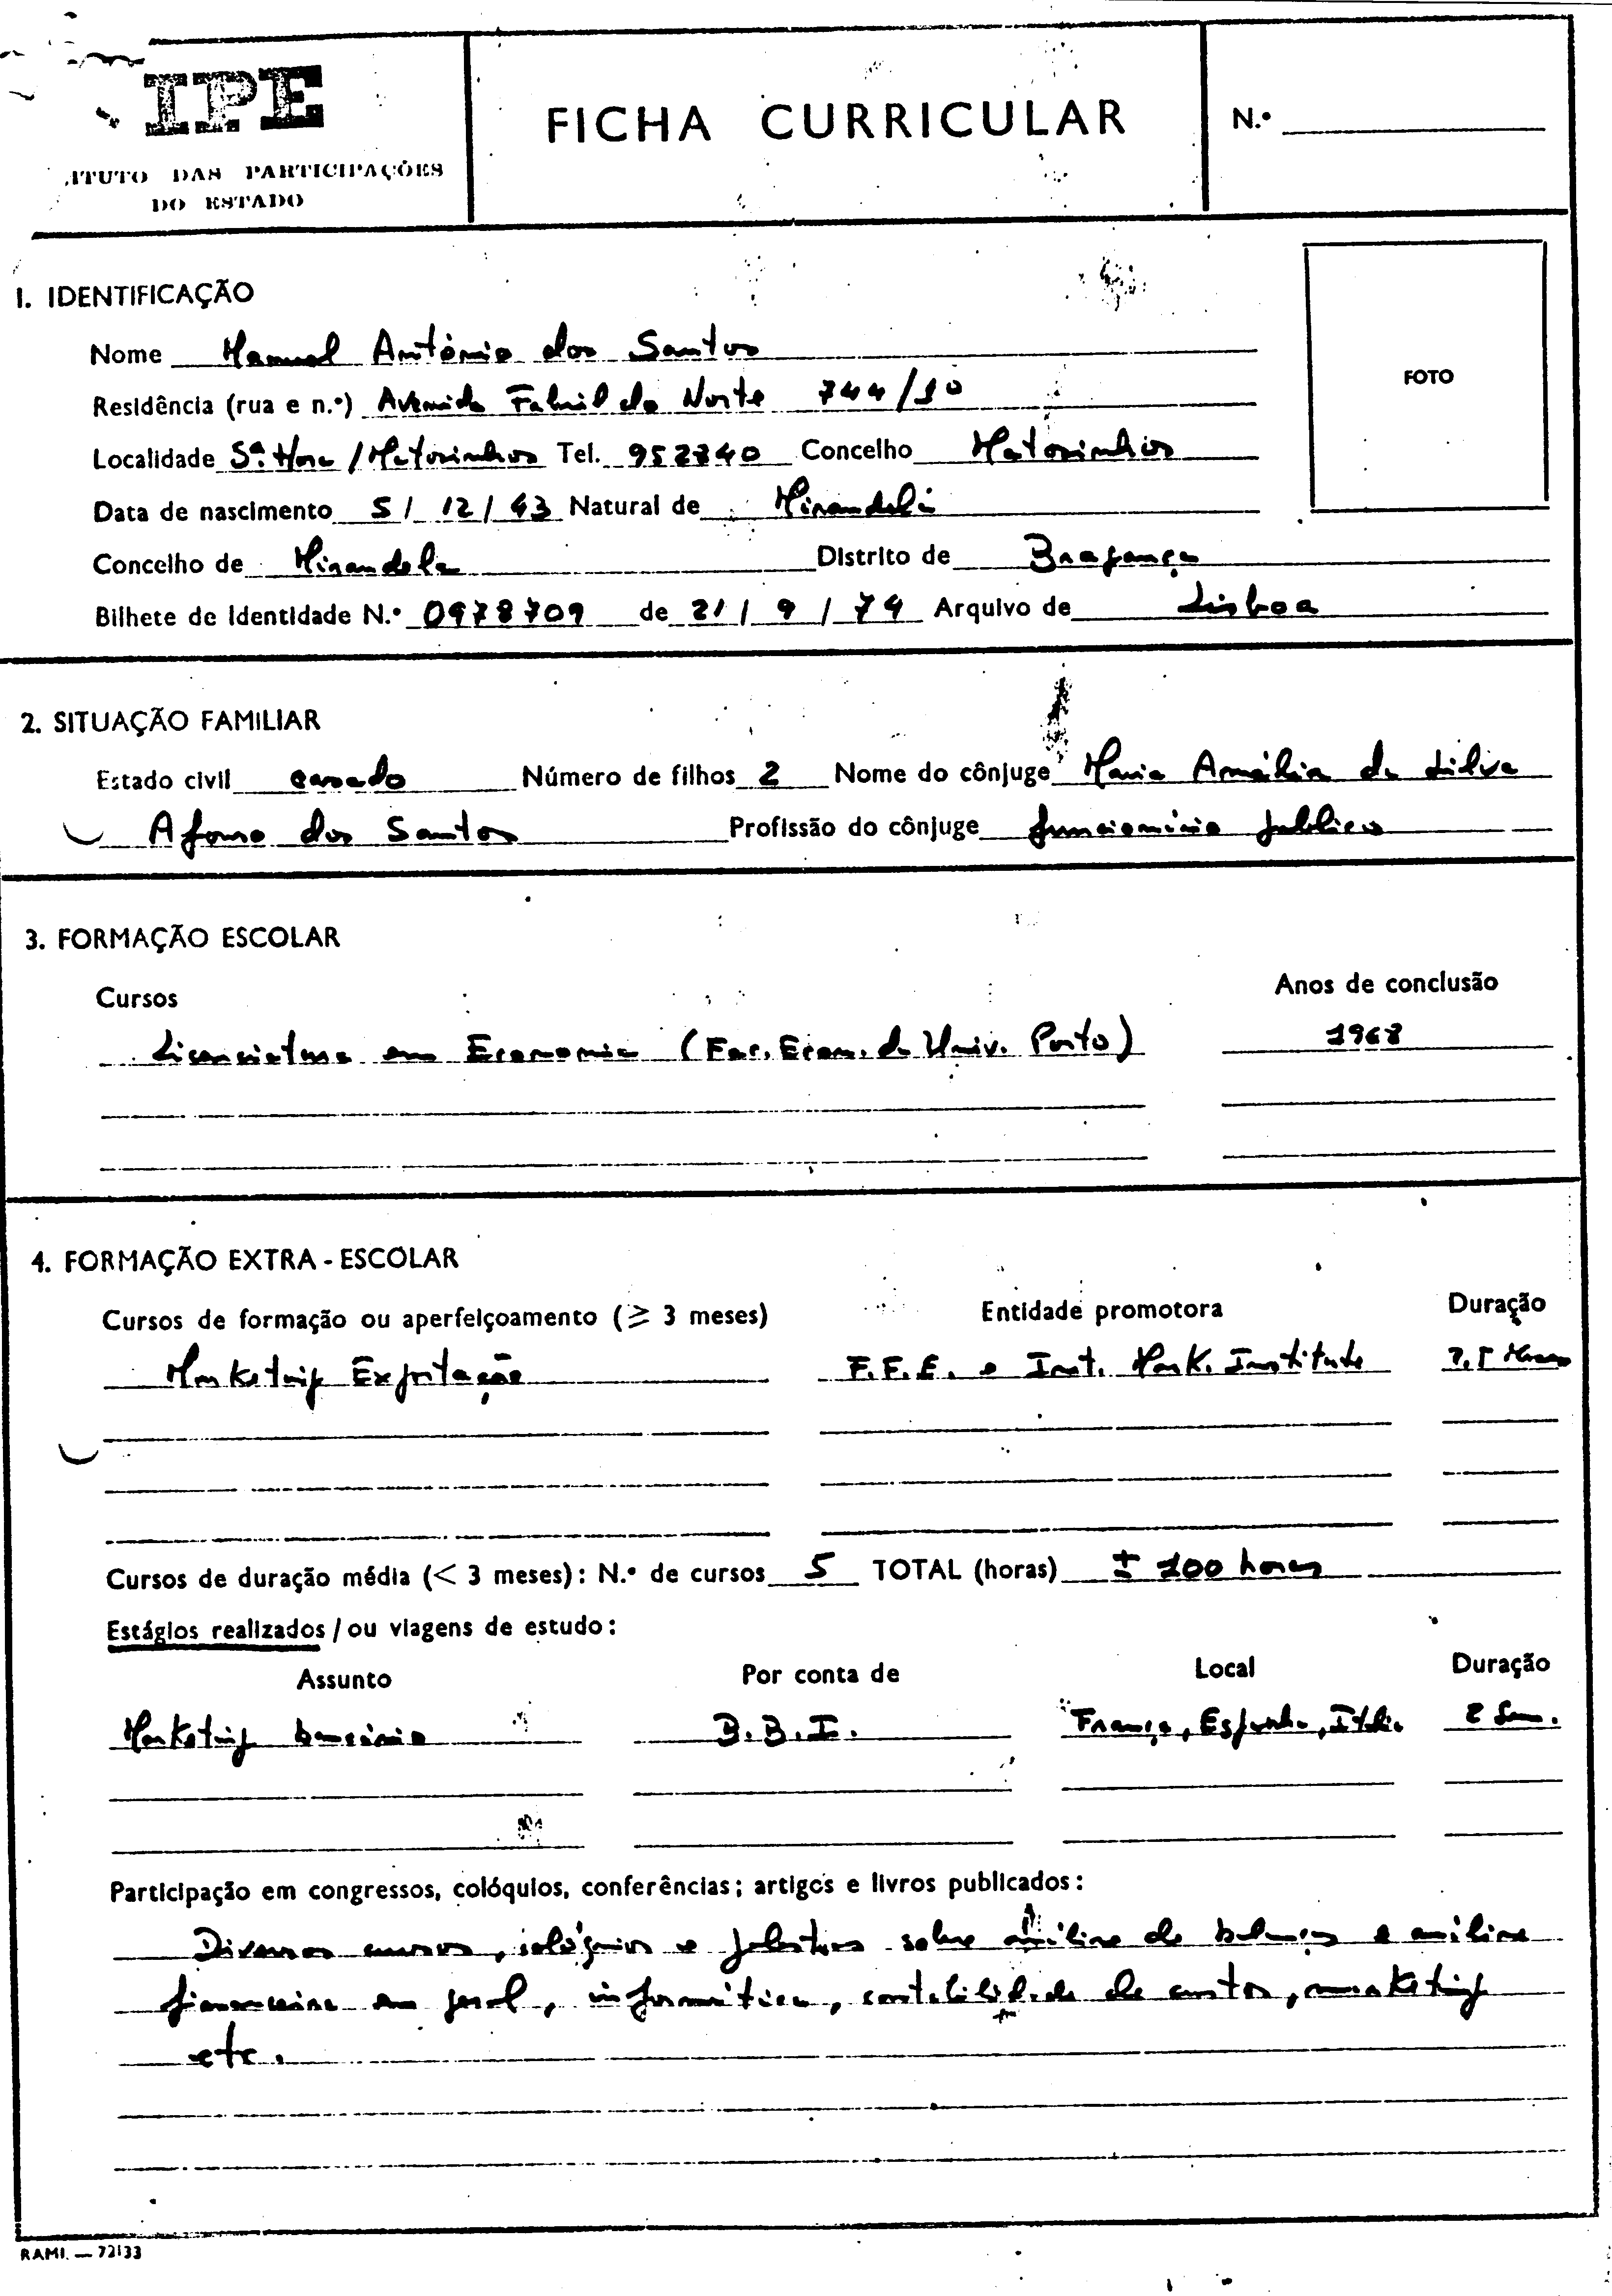 IPE
ITUTO DAS PARTICIPAÇÕES
DO ESTADO
FICHA CURRICULAR
N.º
1. IDENTIFICAÇÃO
FOTO
Nome Manuel António dos Santos
Residência (rua e n.º) Avenida Fabril do Norte 744/10
Localidade Sª. Hora / Matosinhos Tel. 952740 Concelho Matosinhos
Data de nascimento 5 / 12 / 43 Natural de Mirandela
Concelho de Mirandela Distrito de Bragança
Bilhete de Identidade N.º 0978709 de 21 / 9 / 74 Arquivo de Lisboa
2. SITUAÇÃO FAMILIAR
Estado civil casado Número de filhos 2 Nome do cônjuge Maria Amália da Silva
Afonso dos Santos Profissão do cônjuge funcionário publico
3. FORMAÇÃO ESCOLAR
Cursos Anos de conclusão
Licenciatura em Economia (Fac. Econ. da Univ. Porto) 1968
4. FORMAÇÃO EXTRA - ESCOLAR
Cursos de formação ou aperfeiçoamento (≥ 3 meses) Entidade promotora Duração
Marketing Exportação F.F.E. e Int. Mark. Institute
Cursos de duração média (< 3 meses): N.º de cursos 5 TOTAL (horas) ± 200 horas
Estágios realizados / ou viagens de estudo:
Assunto Por conta de Local Duração
Marketing bancário B.B.I. França, Espanha, Itália Sem.
Participação em congressos, colóquios, conferências; artigos e livros publicados:
Diversos cursos, colóquios e palestras sobre análise de balanços e análise
financeira em geral, informática, contabilidade de custos, marketing
etc.
RAMI. — 72133